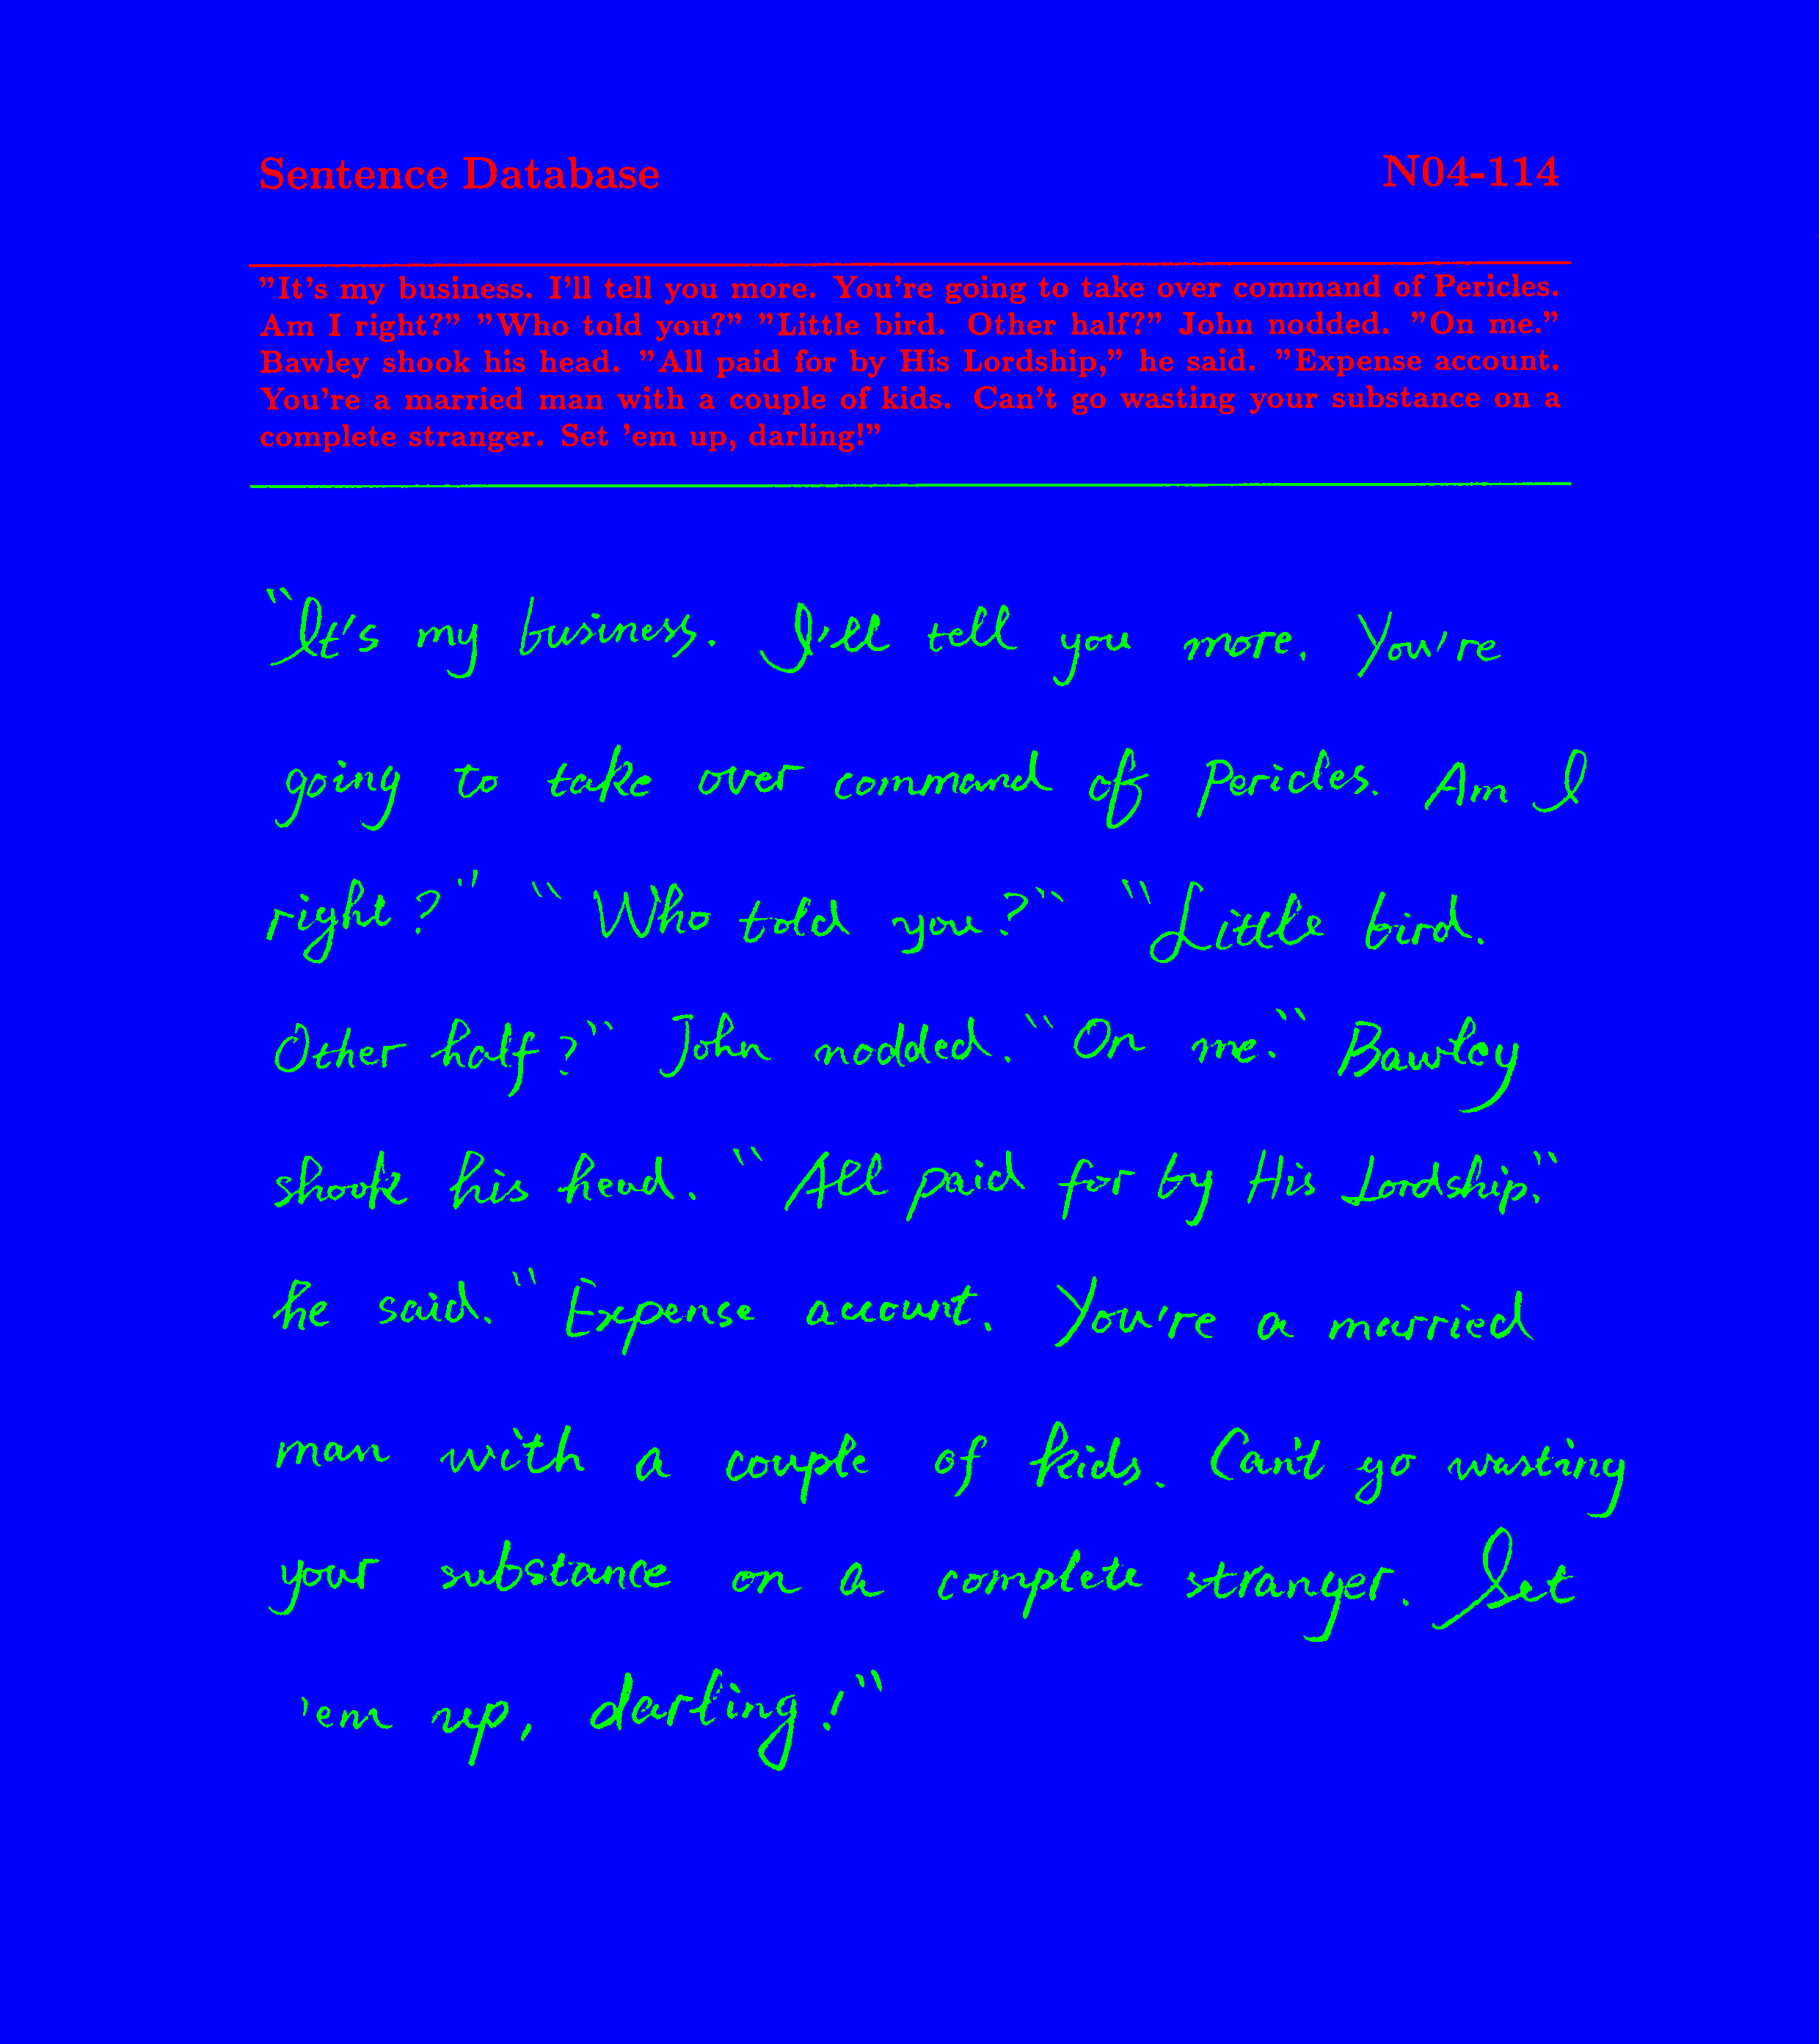 Sentence Database N04-114
"It's my business. I'll tell you more. You're going to take over command of Pericles.
Am I right?" "Who told you?" "Little bird. Other half?" John nodded. "On me."
Bawley shook his head. "All paid for by His Lordship," he said. "Expense account.
You're a married man with a couple of kids. Can't go wasting your substance on a
complete stranger. Set 'em up, darling!"
"It's my business. I'll tell you more. You're
going to take over command of Pericles. Am I
right?" "Who told you?" "Little bird.
Other half?" John nodded. "On me." Bawley
shook his head. "All paid for by His Lordship."
he said. "Expense account. You're a married
man with a couple of kids. Can't go wasting
your substance on a complete stranger. Set
'em up, darling!"